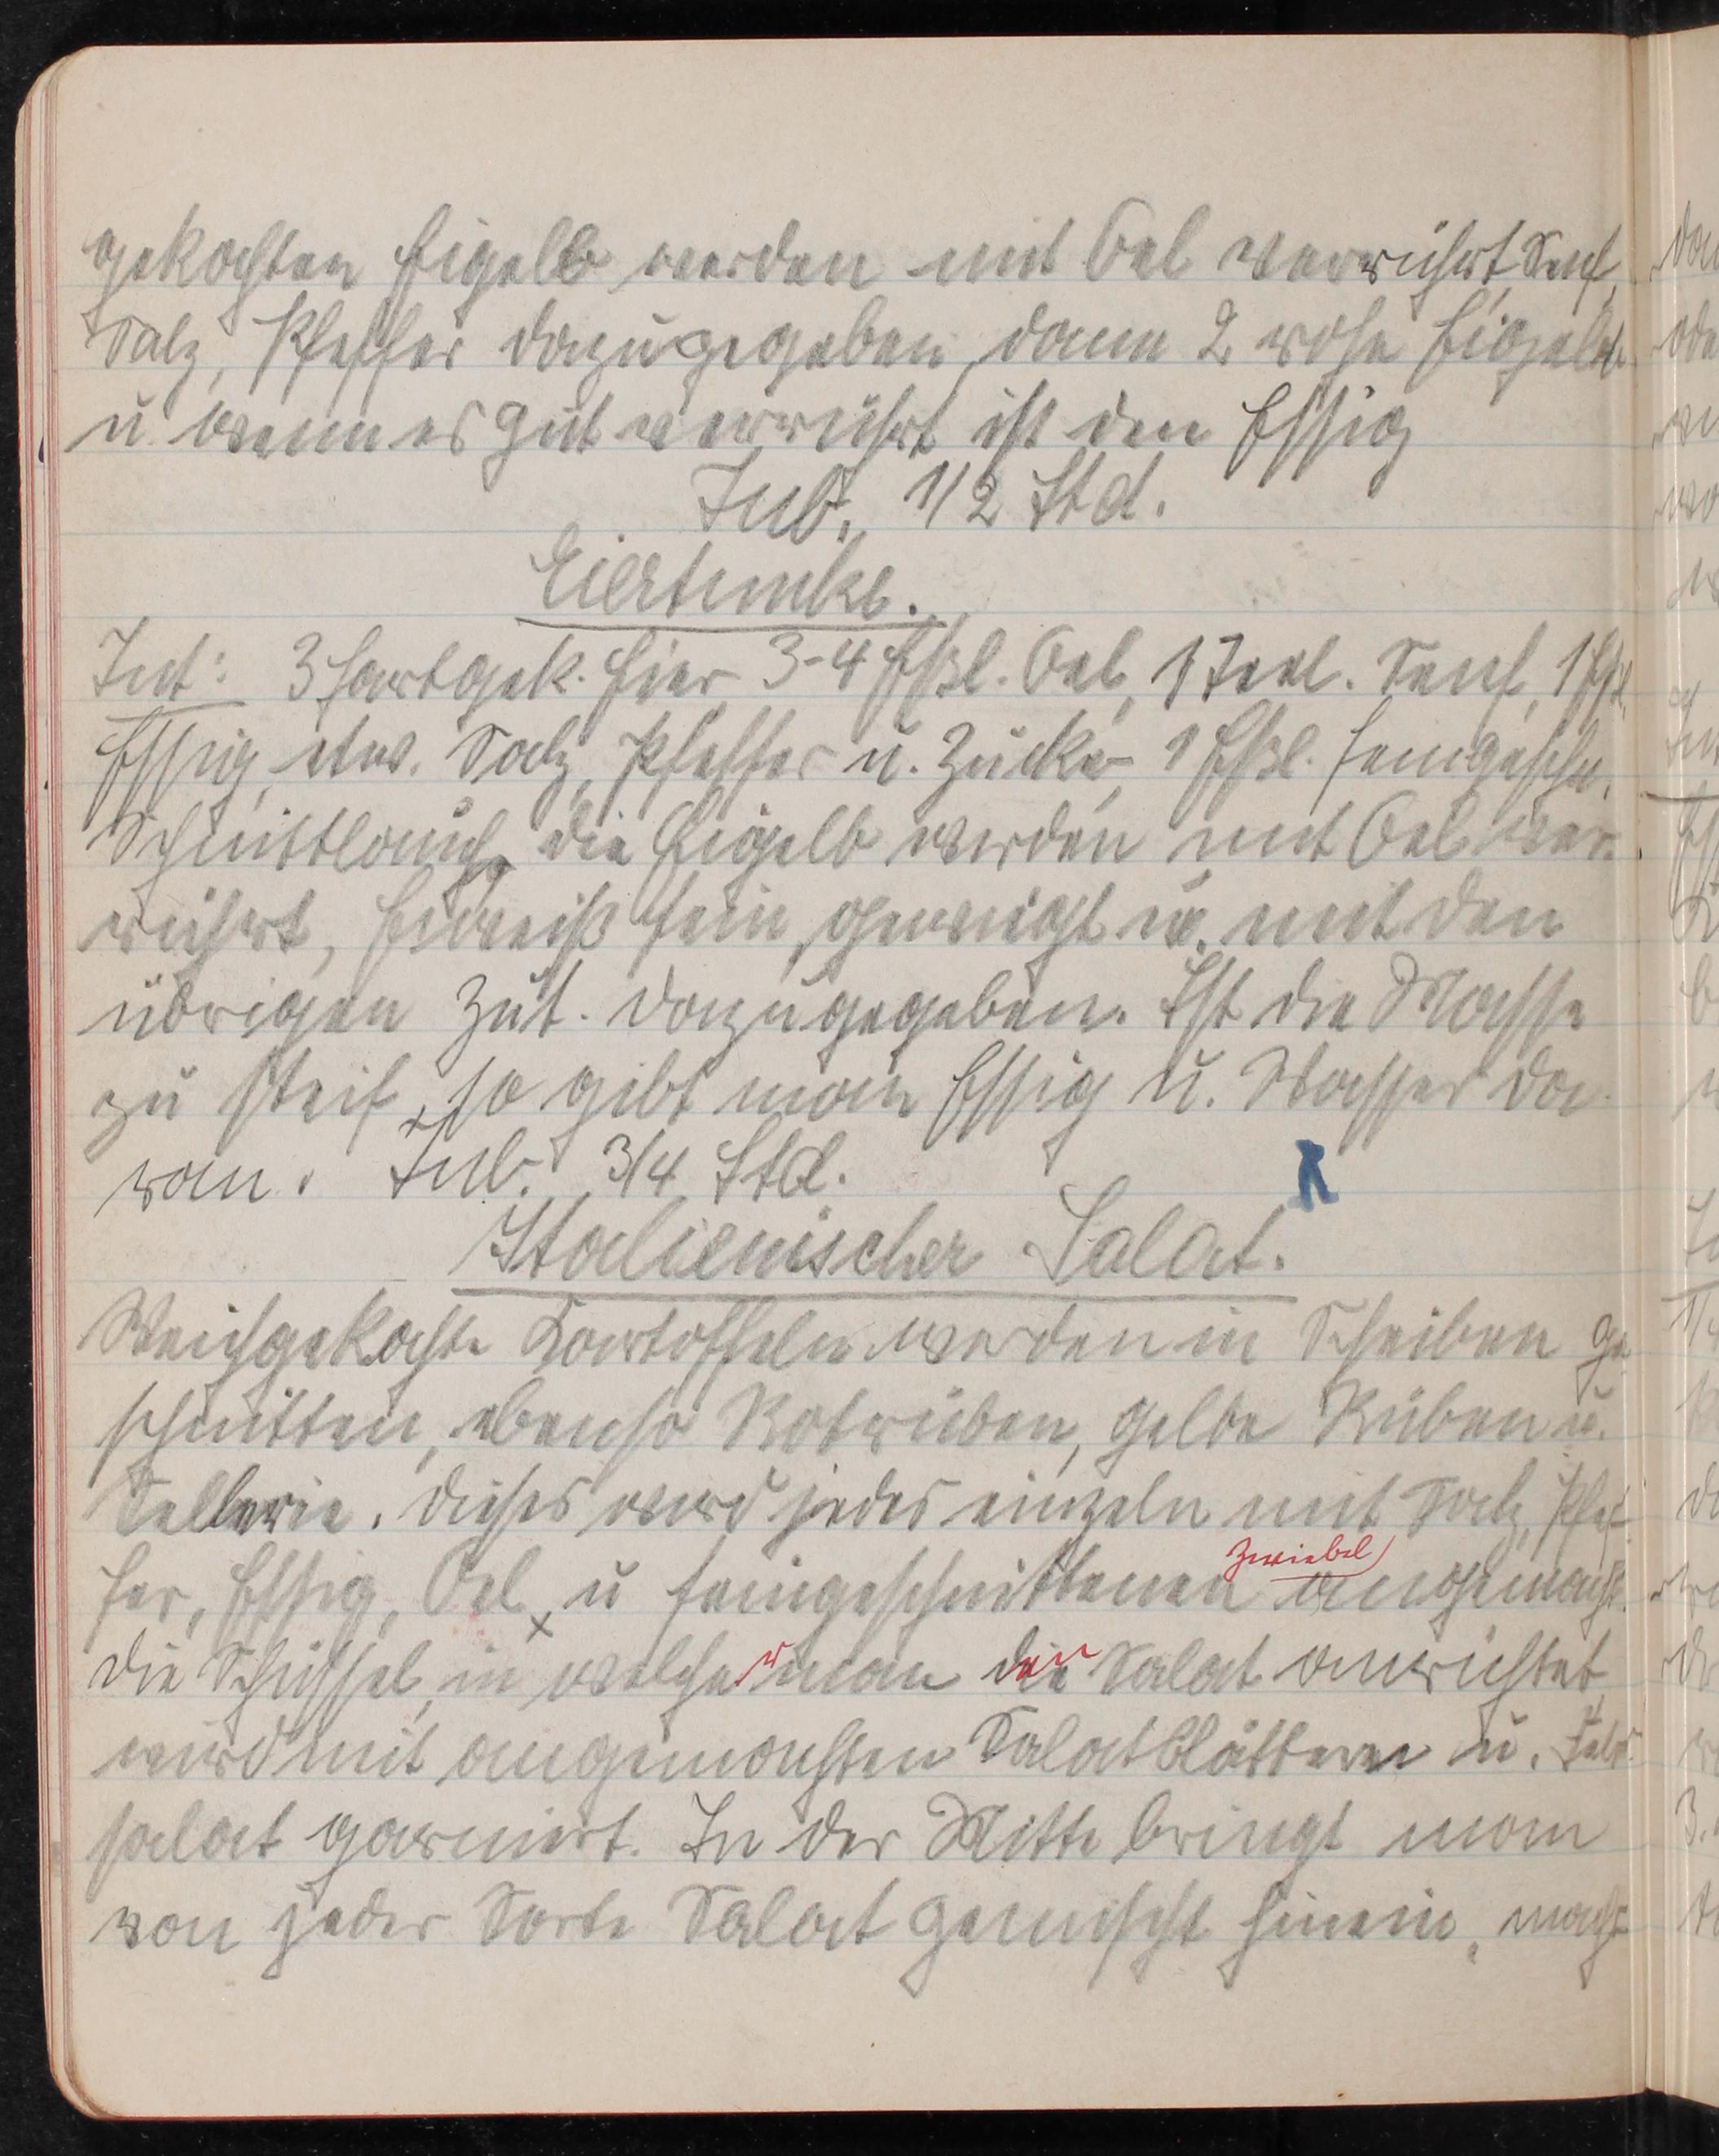 gekochten Eigelb werden mit Oel verrührt, Senf,
Salz, Pfeffer dazugegeben, dann 2 rohe Eigelb
u. wenn es gut verrührt ist den Essig
Zub. 1/2 Std.
Eiertunke.
Zut: 3 hartgek. Eier 3-4 Eßl. Oel, 1 Teel. Senf, 1 Eßl.
Essig, etw. Salz, Pfeffer u. Zucker, 1 Eßl. feingeschn.
Schnittlauch, die Eigelb werden mit Oel ver-
rührt, Eiweiß fein gewiegt u. mit den
übrigen Zut. dazugegeben. Ist die Masse
zu steif, so gibt man Essig u. Wasser da-
ran. Zub. 3/4 Std.
Italienischer Salat.
Weichgekochte Kartoffeln werden in Scheiben ge-
schnitten, ebenso Rotrüben, gelbe Rüben u.
Sellerie. Dieses wird jedes einzeln mit Salz, Pfef-
fer, Essig, Oel u feingeschnittenen Zwiebel angemacht.
Die Schüssel, in welcher man den Salat anrichtet
wird mit angemachten Salatblättern u. Feld-
salat garniert. In der Mitte bringt man
von jeder Sorte Salat gemischt hinein, macht